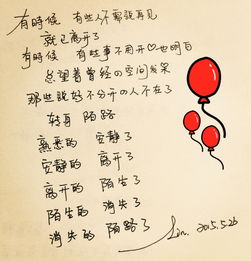 有时候 有些人不需说再见
就已离开了
有时候 有些事不用开口也明白
总望着曾经の空间发呆
那些说好不分开の人不在了
转身 陌路
熟悉的 安静了
安静的 离开了
离开的 陌生了
陌生的 消失了
消失的 陌路了
Lin. 2015.5.26